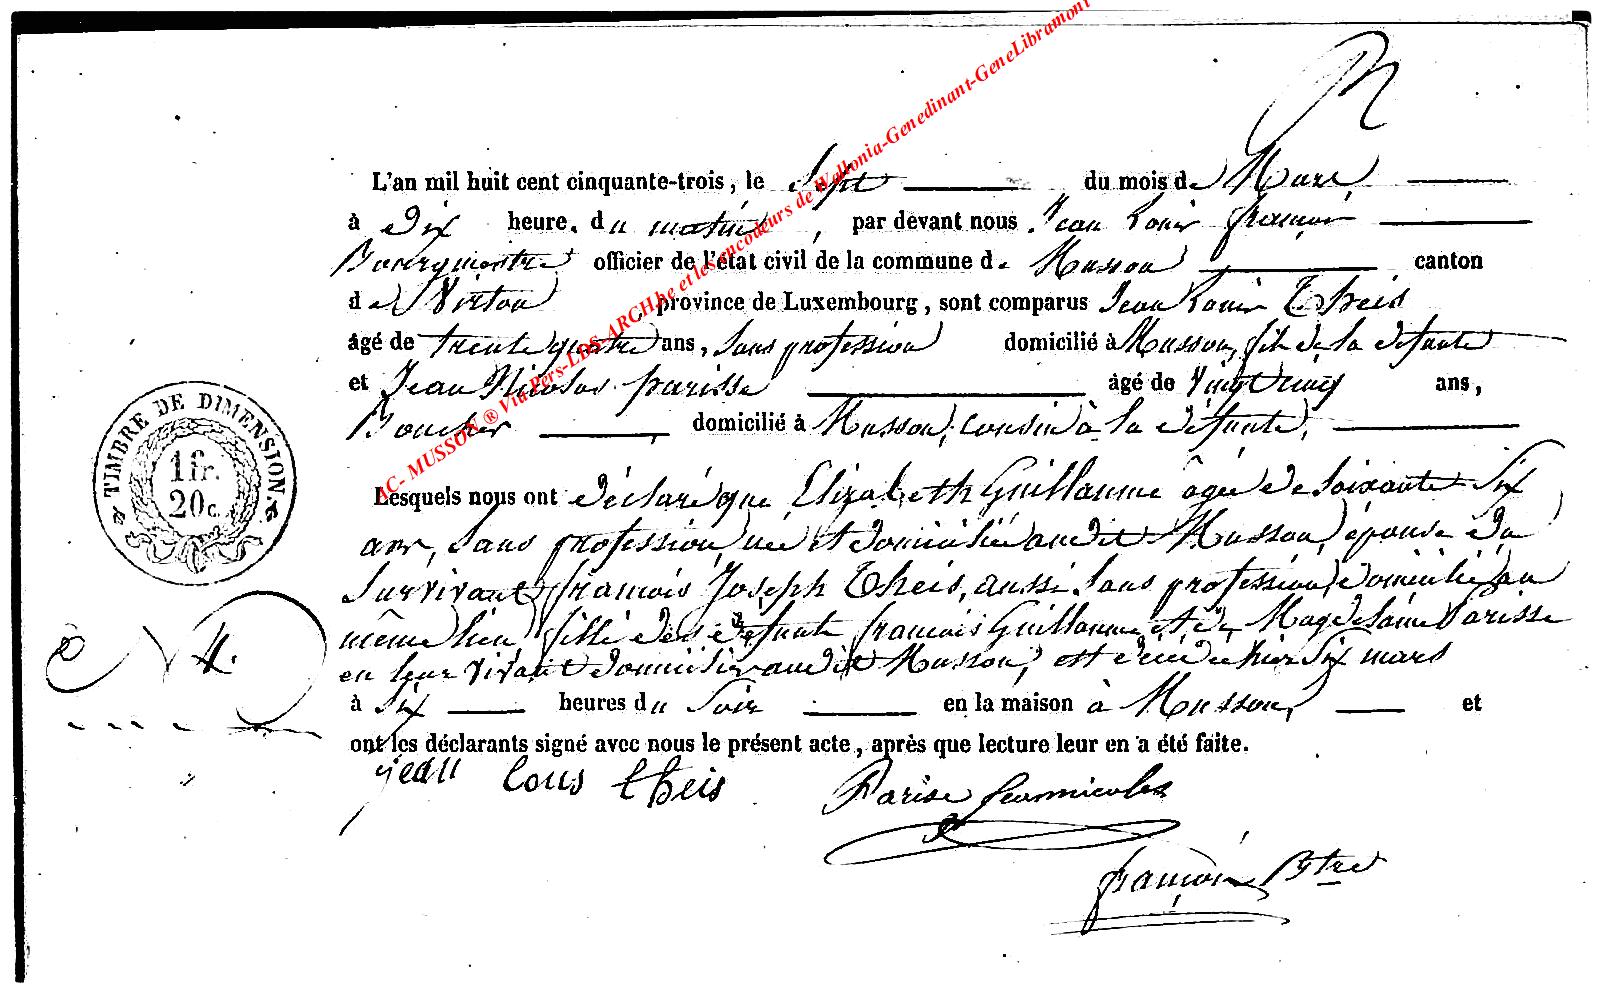 L'an mil huit cent cinquante-trois, le Sept du mois de Mars,
à Dix heures du matin, par devant nous Jean Louis françois
Bourgmestre officier de l'état civil de la commune de Musson canton
de Virton province de Luxembourg, sont comparus Jean Louis Theis
âgé de trente quatre ans, sans profession domicilié à Musson, fils de la défunte
et Jean Nicolas parisse âgé de vingt cinq ans,
Boucher domicilié à Musson, cousin à la défunte,
Lesquels nous ont déclaré que Elizabeth Guillaume âgée de soixante Six
ans, sans profession, née et domiciliée audit Musson, épouse du
survivant françois Joseph Theis, aussi sans profession, domicilié au
même lieu, fille des défunts françois Guillaume et de Magdelaine Parisse
en leur vivant domiciliés audit Musson, est décédée hier Six mars
à six heures du soir en la maison à Musson, et
ont les déclarants signé avec nous le présent acte, après que lecture leur en a été faite.
jean lous theis Parise jeannicolas
françois Btre
TIMBRE DE DIMENSION.
1 fr.
20 c.
N 4.
AC- MUSSON ® Via Pers-LDS-ARCH.be et les encodeurs de Wallonia-Genedinant-GeneLibramont